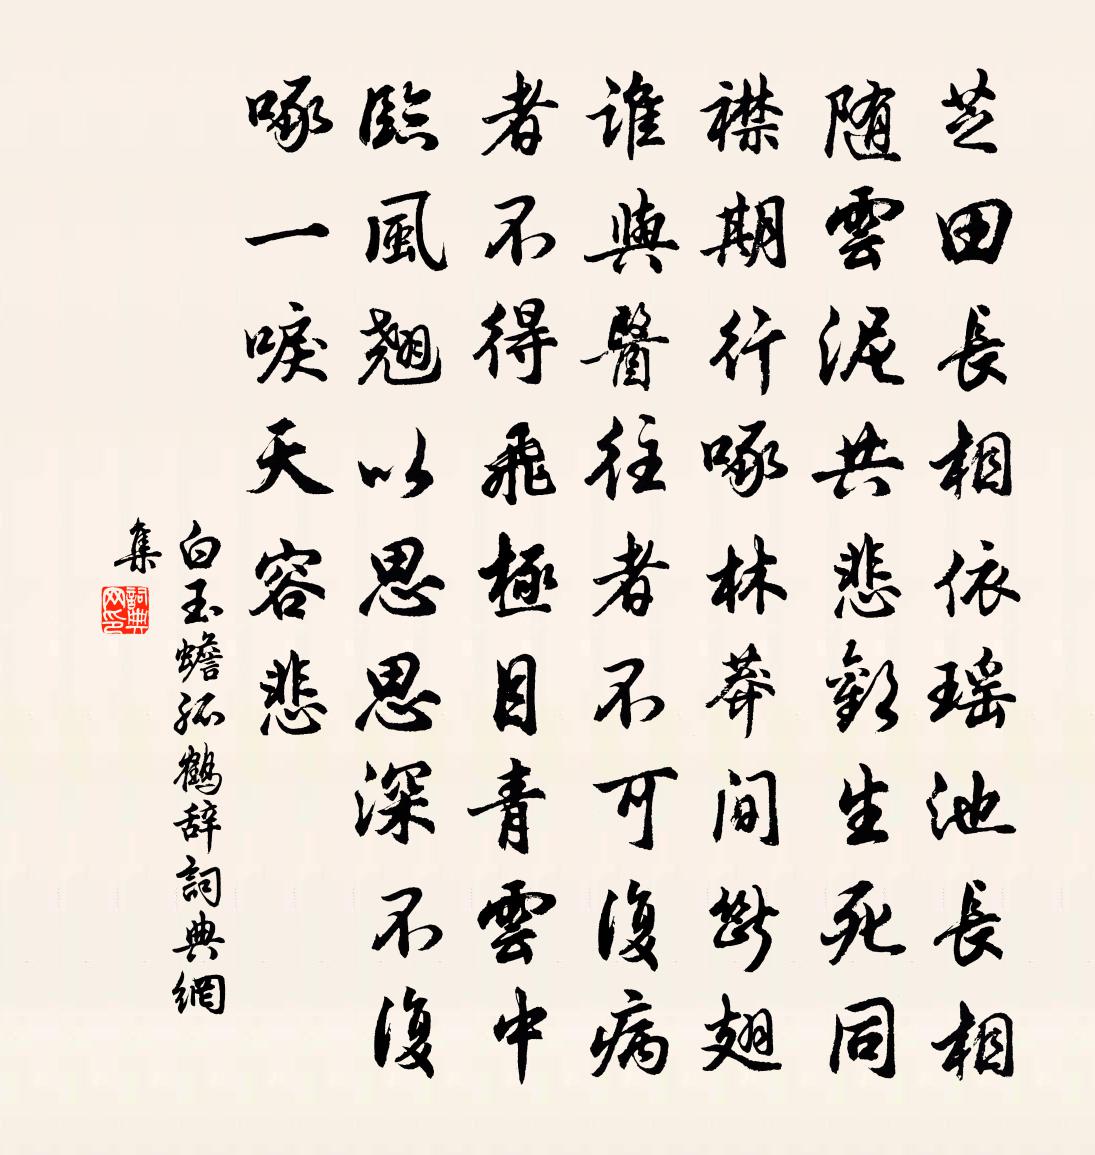 芝田長相依瑶池長相
随雲泥共悲歡生死同
襟期行啄林莽間斷翅
誰與醫往者不可復病
者不得飛極目青雲中
臨風翹以思思深不復
啄一唳天容悲
白玉蟾孤鶴辞詞典網
集
詞典
网印